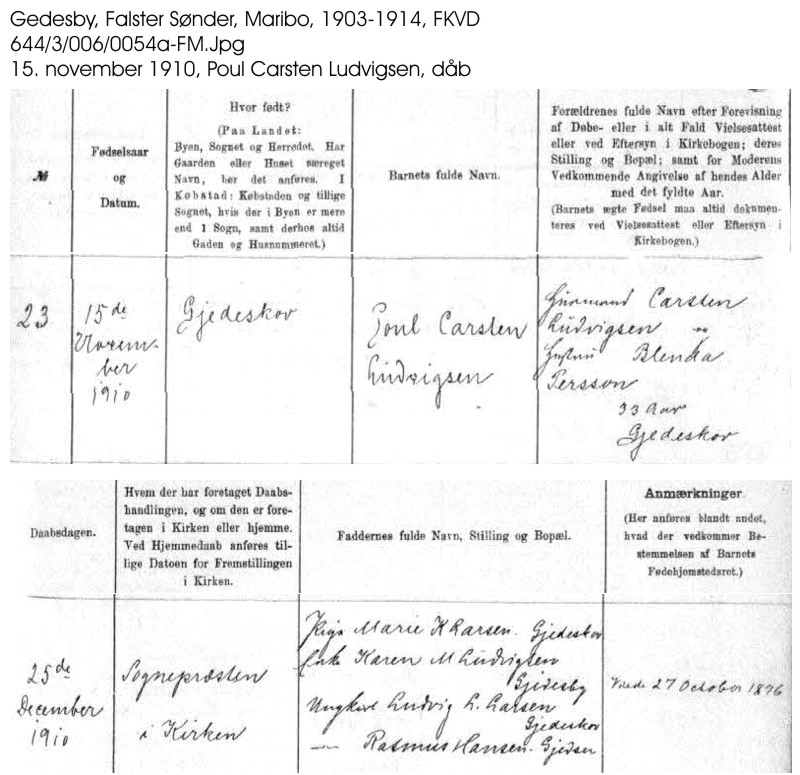 Gedesby, Falster Sønder, Maribo, 1903-1914, FKVD
644/3/006/0054a-FM.Jpg
15. november 1910, Poul Carsten Ludvigsen, dåb
№
Fødselsaar
og
Datum.
Hvor født?
(Paa Landet:
Byen, Sognet og Herredet. Har
Gaarden eller Huset særeget
Navn, bør det anføres. I
Købstad: Købstaden og tillige
Sognet, hvis der i Byen er mere
end 1 Sogn, samt derhos altid
Gaden og Husnummeret.)
Barnets fulde Navn.
Forældrenes fulde Navn efter Forevisning
af Døbe- eller i alt Fald Vielsesattest
eller ved Eftersyn i Kirkebogen; deres
Stilling og Bopæl; samt for Moderens
Vedkommende Angivelse af hendes Alder
med det fyldte Aar.
(Barnets ægte Fødsel maa altid dokumen-
teres ved Vielsesattest eller Eftersyn i
Kirkebogen.)
23
15de
Novem-
ber
1910
Gjedeskov
Poul Carsten
Ludvigsen
Carsten
Ludvigsen og
Hustru Blenda
Persson
33 Aar
Gjedeskov
Daabsdagen.
Hvem der har foretaget Daabs-
handlingen, og om den er fore-
tagen i Kirken eller hjemme.
Ved Hjemmedaab anføres til-
lige Datoen for Fremstillingen
i Kirken.
Faddernes fulde Navn, Stilling og Bopæl.
Anmærkninger.
(Her anføres blandt andet,
hvad der vedkommer Be-
stemmelsen af Barnets
Fødehjemstedsret.)
25de
December
1910
Sognepræsten
i Kirken
Pige Marie K Larsen. Gjedeskov
Enke Karen M Ludvigsen
Gjedesby
Ungkarl Ludvig L. Larsen
Gjedeskov
— Rasmus Hansen. Gjedser
27 October 1896